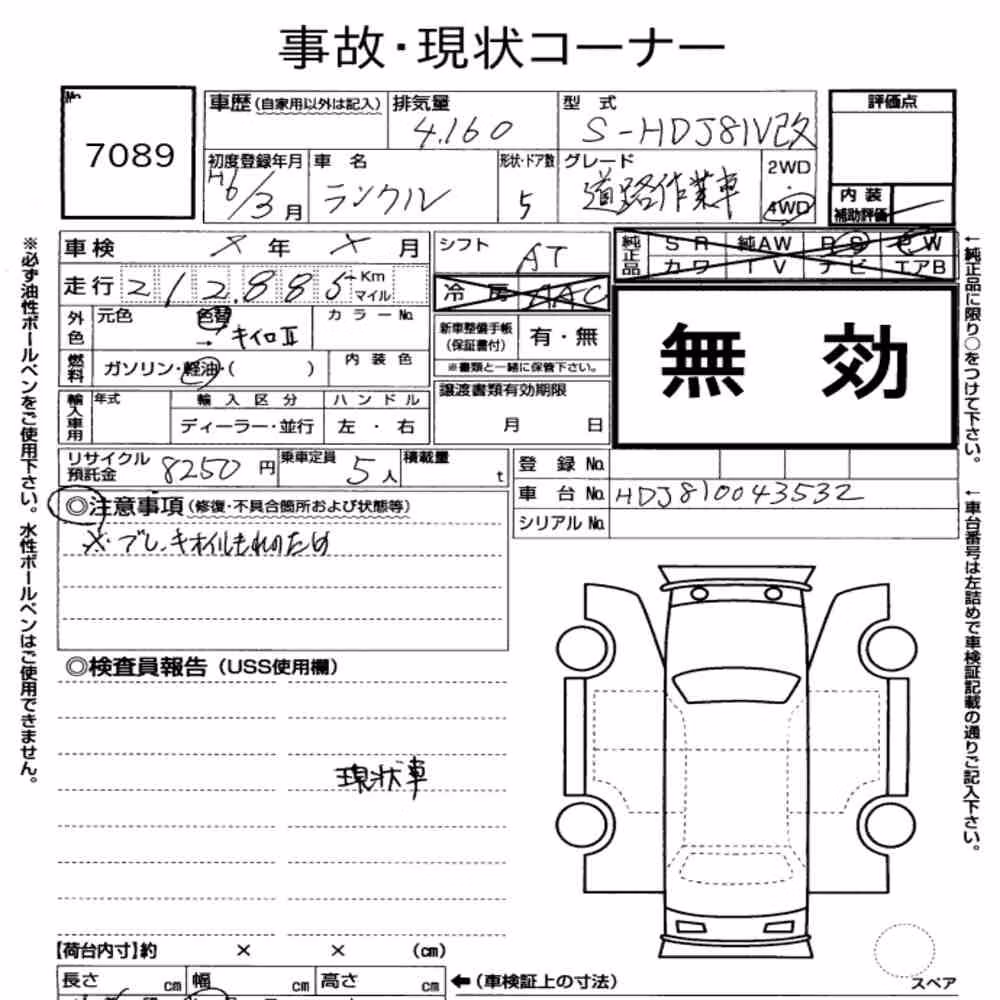 事故・現状コーナー
No. 7089
車歴(自家用以外は記入) 排気量 4.160 型式 S-HDJ81V改
評価点
初度登録年月 H6/3月 車名 ランクル 形状・ドア数 5 グレード 道路作業車 2WD・4WD
内装補助評価
車検 × 年 × 月 シフト AT
純正品 SR 純AW PS PW
カワ TV ナビ エアB
走行 212,885 Km マイル
冷房 AAC
外色 元色 色替→キイロⅡ カラーNo.
新車整備手帳(保証書付) 有・無
※書類と一緒に保管下さい。
無効
燃料 ガソリン・軽油・( ) 内装色
譲渡書類有効期限 月 日
輸入車用 年式 輸入区分 ハンドル
ディーラー・並行 左・右
リサイクル預託金 8250円 乗車定員 5人 積載量 t
登録No.
車台No. HDJ810043532
シリアルNo.
◎注意事項(修復・不具合箇所および状態等)
※・ブレーキオイルもれのため
◎検査員報告(USS使用欄)
現状車
【荷台内寸】約 × × (cm)
長さ cm 幅 cm 高さ cm ←(車検証上の寸法)
スペア
※必ず油性ボールペンをご使用下さい。水性ボールペンはご使用できません。
←純正品に限り○をつけて下さい。
←車台番号は左詰めで車検証記載の通りご記入下さい。